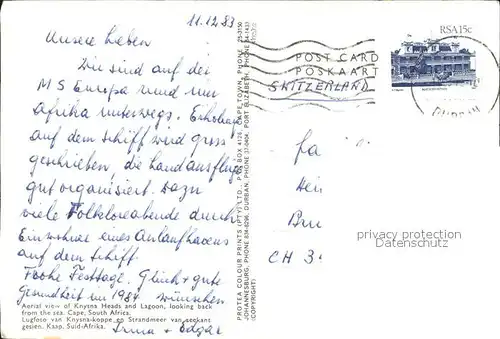 11.12.83
Unsere Lieben
Wir sind auf der
M S Europa rund um
Afrika unterwegs. Erholung
auf dem Schiff wird gross
geschrieben, die Landausflüge
gut organisiert. Dazu
viele Folkloreabende durch
Einwohner eines Anlaufhavens
auf dem Schiff
Frohe Festtage. Glück + gute
Gesundheit im 1984 wünschen
Irma + Edgar
Aerial view of Knysna Heads and Lagoon, looking back
from the sea. Cape, South Africa.
Lugfoto van Knysna-koppe en Strandmeer van seekant
gesien. Kaap, Suid-Afrika.
PROTEA COLOUR PRINTS (PTY) LTD., P.O. BOX 4126, CAPE TOWN, PHONE
JOHANNESBURG, PHONE DURBAN, PHONE PORT ELIZABETH, PHONE
(COPYRIGHT)
POST CARD
POSKAART
SWITZERLAND
RSA 15c
DURBAN
Fa
Bru
CH 3
privacy protection
datenschutz